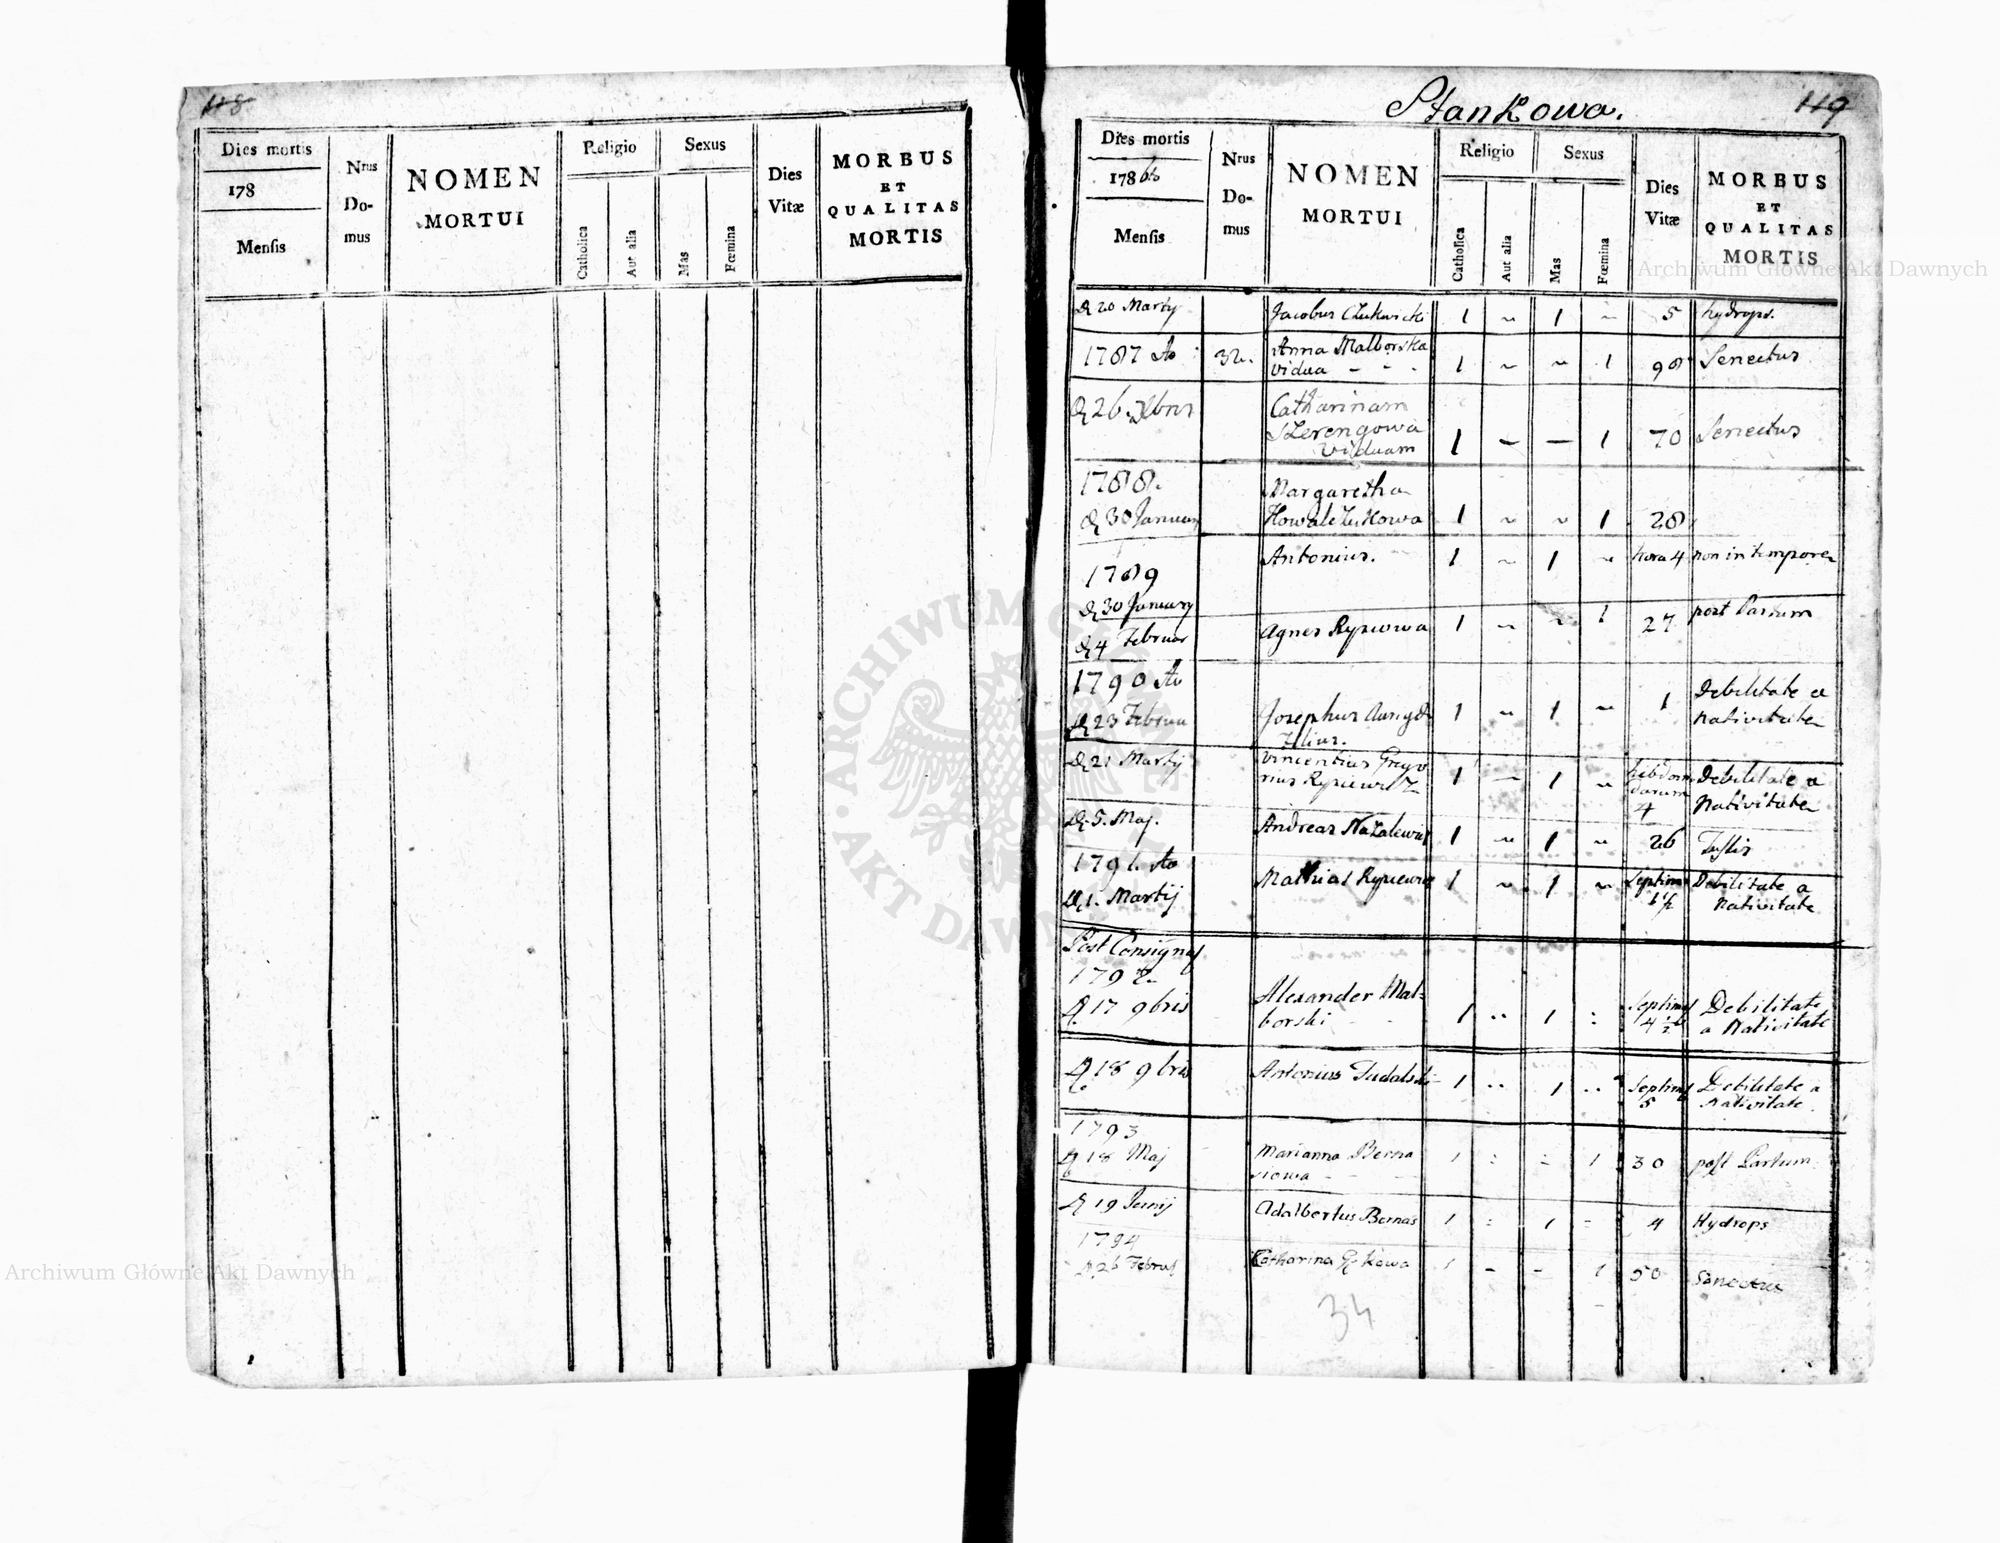 118
Dies mortis
178
Mensis
Nrus
Do-
mus
NOMEN
MORTUI
Religio
Catholica
Aut alia
Sexus
Mas
Fœmina
Dies
Vitæ
MORBUS
ET
QUALITAS
MORTIS
Stankowa.
119
Dies mortis
178
Mensis
Nrus
Do-
mus
NOMEN
MORTUI
Religio
Catholica
Aut alia
Sexus
Mas
Fœmina
Dies
Vitæ
MORBUS
ET
QUALITAS
MORTIS
20 Martij Jacobus 1 ~ 1 ~ 5 hydrops.
1787 Ao 32. Anna Malborska
vidua - - - 1 ~ ~ 1 98 Senectus
26 Catharinam
Szerengowa
viduam 1 — — 1 70 Senectus
1788.
30 Januar Margaretha
Kowalczukowa 1 ~ ~ 1 28
Antonius. 1 ~ 1 ~ hora 4 non in tempore
1789
30 January
4 Februar Agnes 1 ~ ~ 1 27 post Partum
1790 Ao
23 Februar Josephus
filius. 1 ~ 1 ~ 1 Debilitate a
Nativitate
21 Martij Vincentius Grego
rius 1 — 1 ~ hebdom
darum
4 Debilitate a
Nativitate
5. Maj. Andreas 1 ~ 1 ~ 26 Tussis
1791. Ao
1. Martij Mathias 1 ~ 1 ~ Debilitate a
Nativitate
Post Consignaf
1792
17 9bris Alexander Mal-
borski 1 .. 1 : Septim
4 1/2 Debilitate
a Nativitate
18 9bris Antonius 1 .. 1 .. Septim
5 Debilitate a
Nativitate
1793
18 Maj Marianna Berna
siowa 1 : : 1 30 post Partum
19 Junij Adalbertus Bernas 1 : 1 : 4 Hydrops
1794
26 Februar Catharina 1 - - 1 50 Senectus
34
ARCHIWUM GŁÓWNE AKT DAWNYCH
Archiwum Główne Akt Dawnych
Archiwum Główne Akt Dawnych